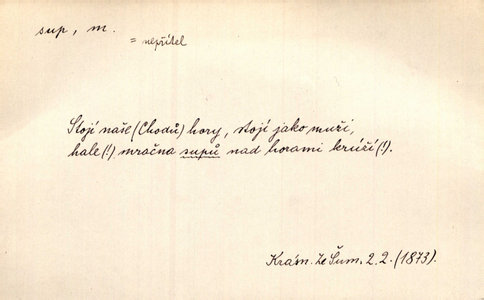 sup, m.
= nepřítel
Stojí naše (Chodů) hory, stojí jako muři,
hale (!) mračna supů nad horami krúží (!).
Krám. Ze Šum. 2. 2. (1873).